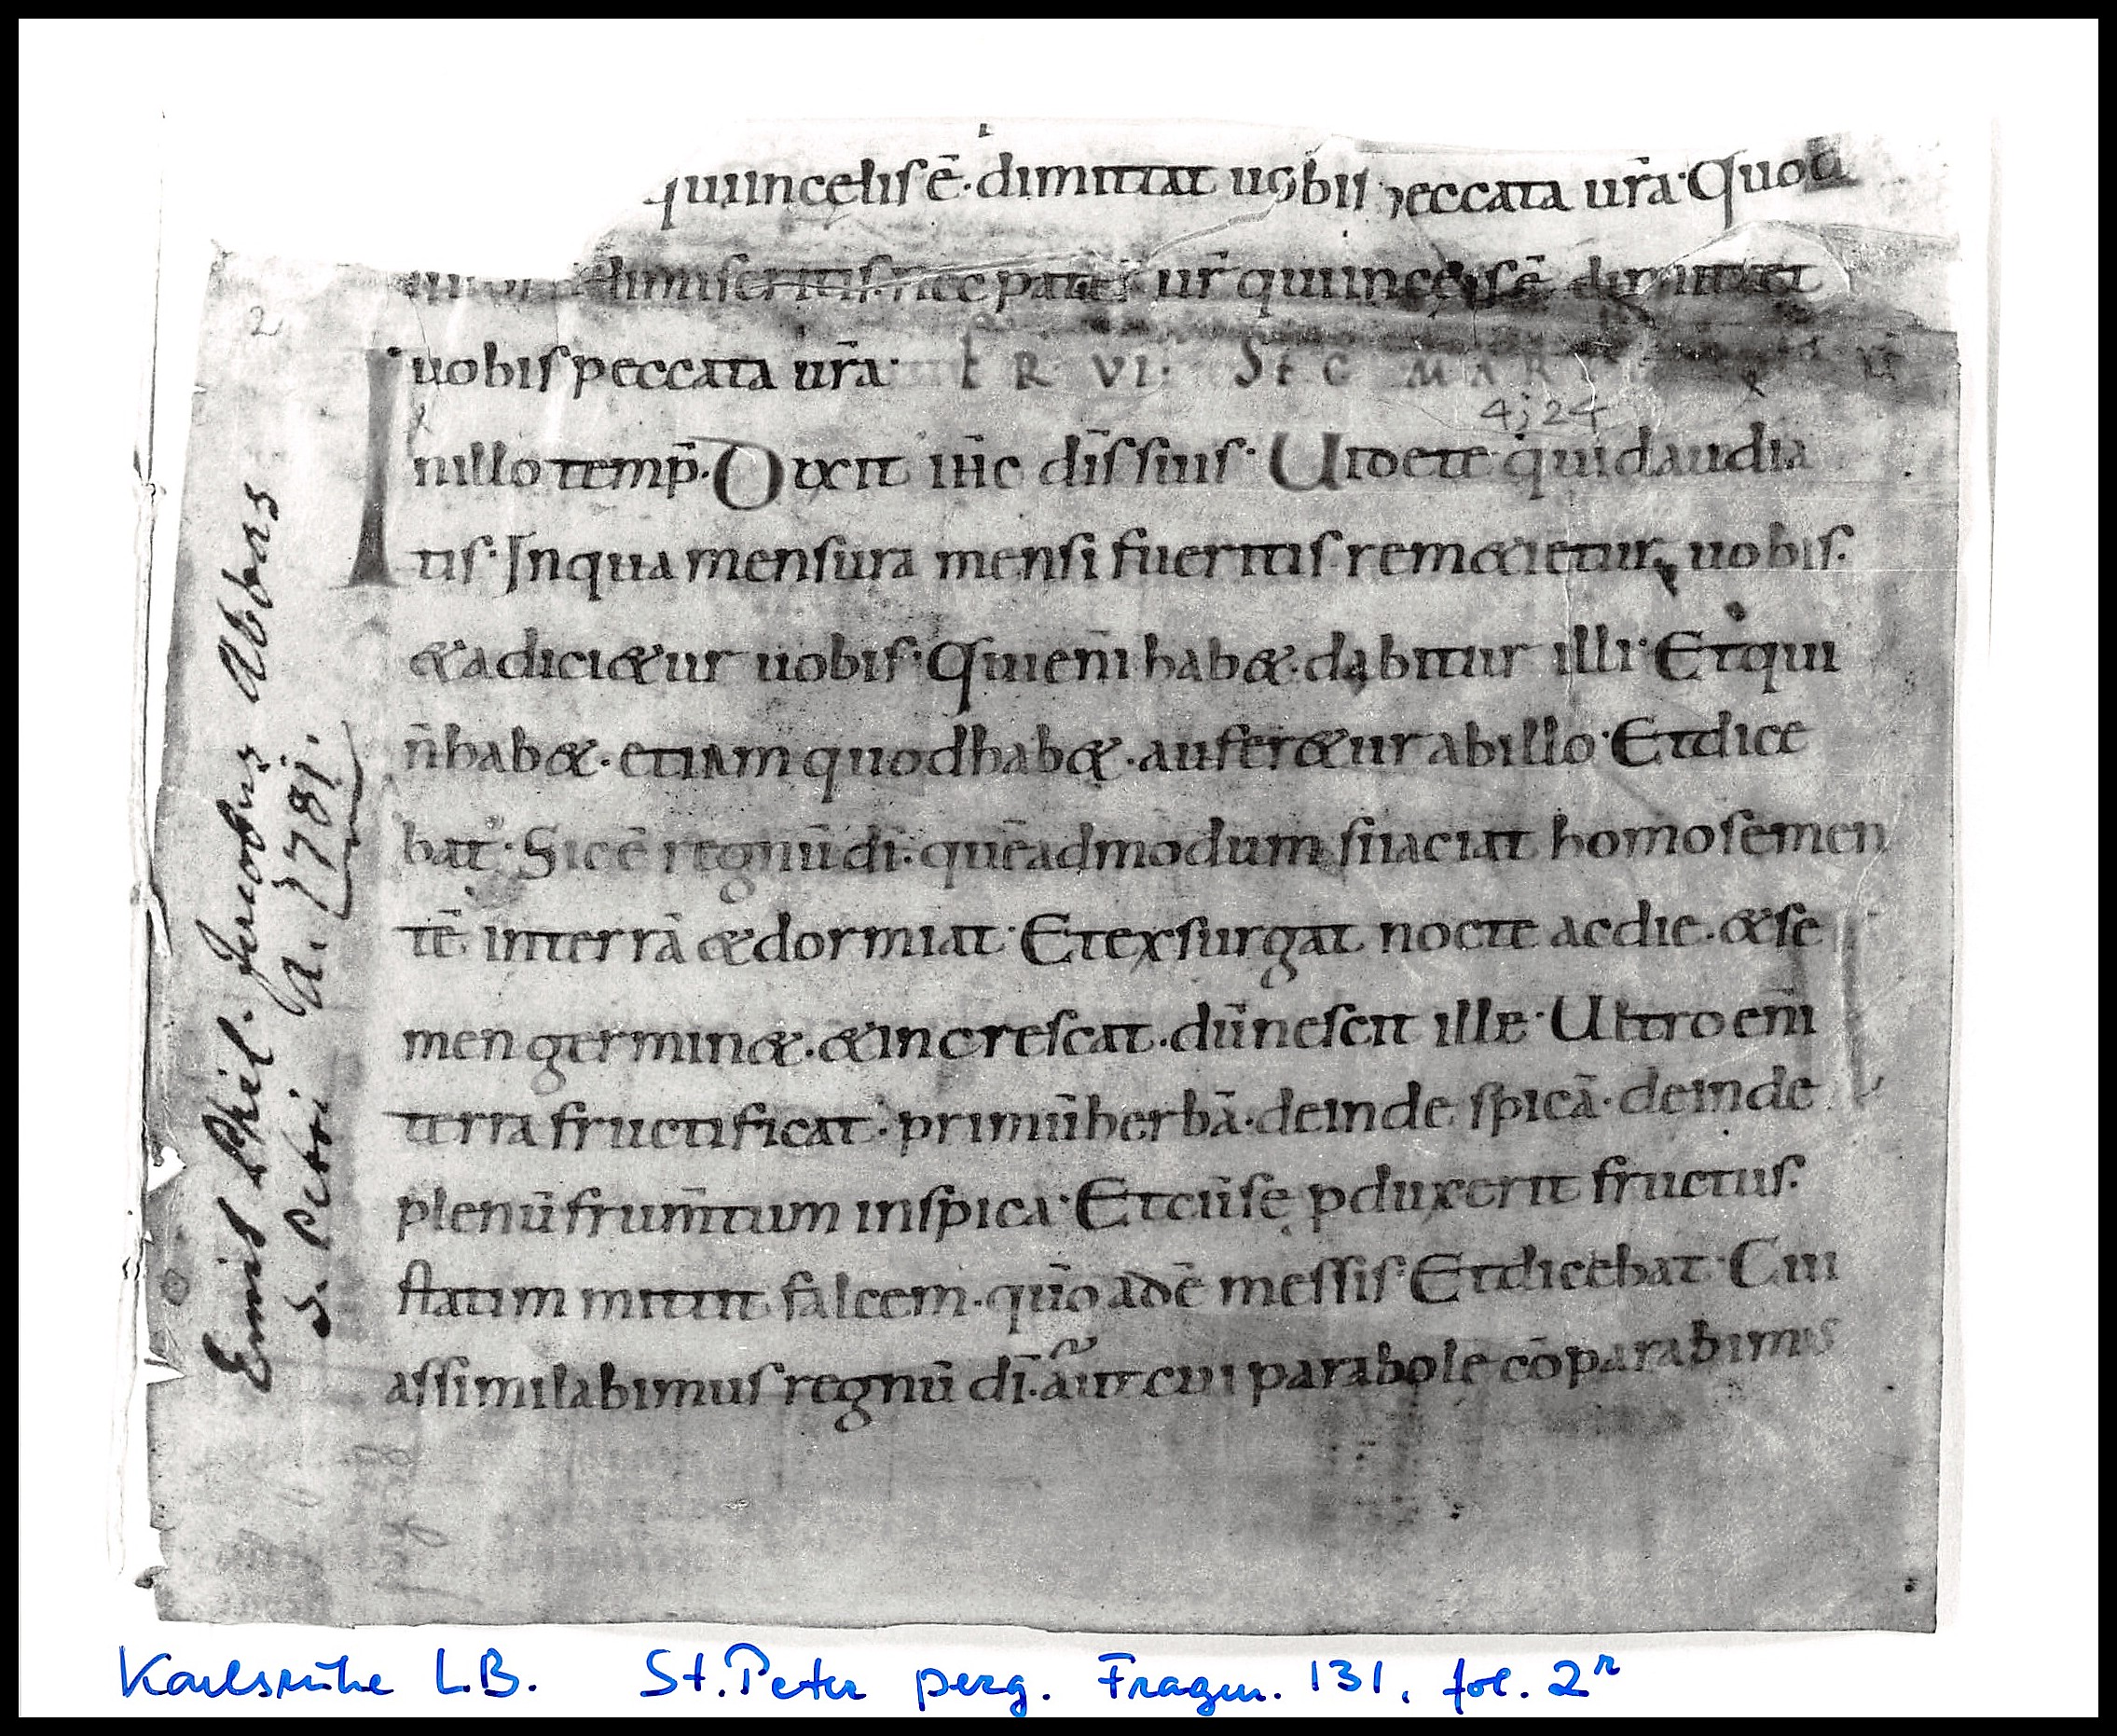 quiincelis ē· dimittat uobis peccata ur̄a· Quod
dimiseritis· nec pater ur̄ quiincelis ē dimittet
uobis peccata ur̄a· F̄R VI· SEC MAR
4; 24
Inillo temp̄· Dixit ih̄c dīs suis· Uidete quid audia
tis· Inqua mensura mensi fueritis· remetietur uobis·
& adici&ur uobis· Qui eni̅ hab&· dabitur illi· Et qui
n̄ hab&· etiam quod hab&· aufer&ur abillo· Et dice
bat· Sic ē regnū dī· quēadmodum siiaciat homo semen
tē interrā & dormiat· Et exsurgat nocte ac die· & se
men germin&· & increscat· dūnescit ille· Ultro eni̅
terra fructificat· primū herbā· deinde spicā· deinde
plenū frum̄tum inspica· Et cū se pduxerit fructus·
statim mittit falcem· qūo adē messis· Et dicebat· Cui
assimilabimus regnū dī· aut cui parabole cōparabimus
2
Emit Phil. Jacobus Abbas
S. Petri a. 1781.
Karlsruhe L.B. St. Peter perg. Fragm. 131, fol. 2r